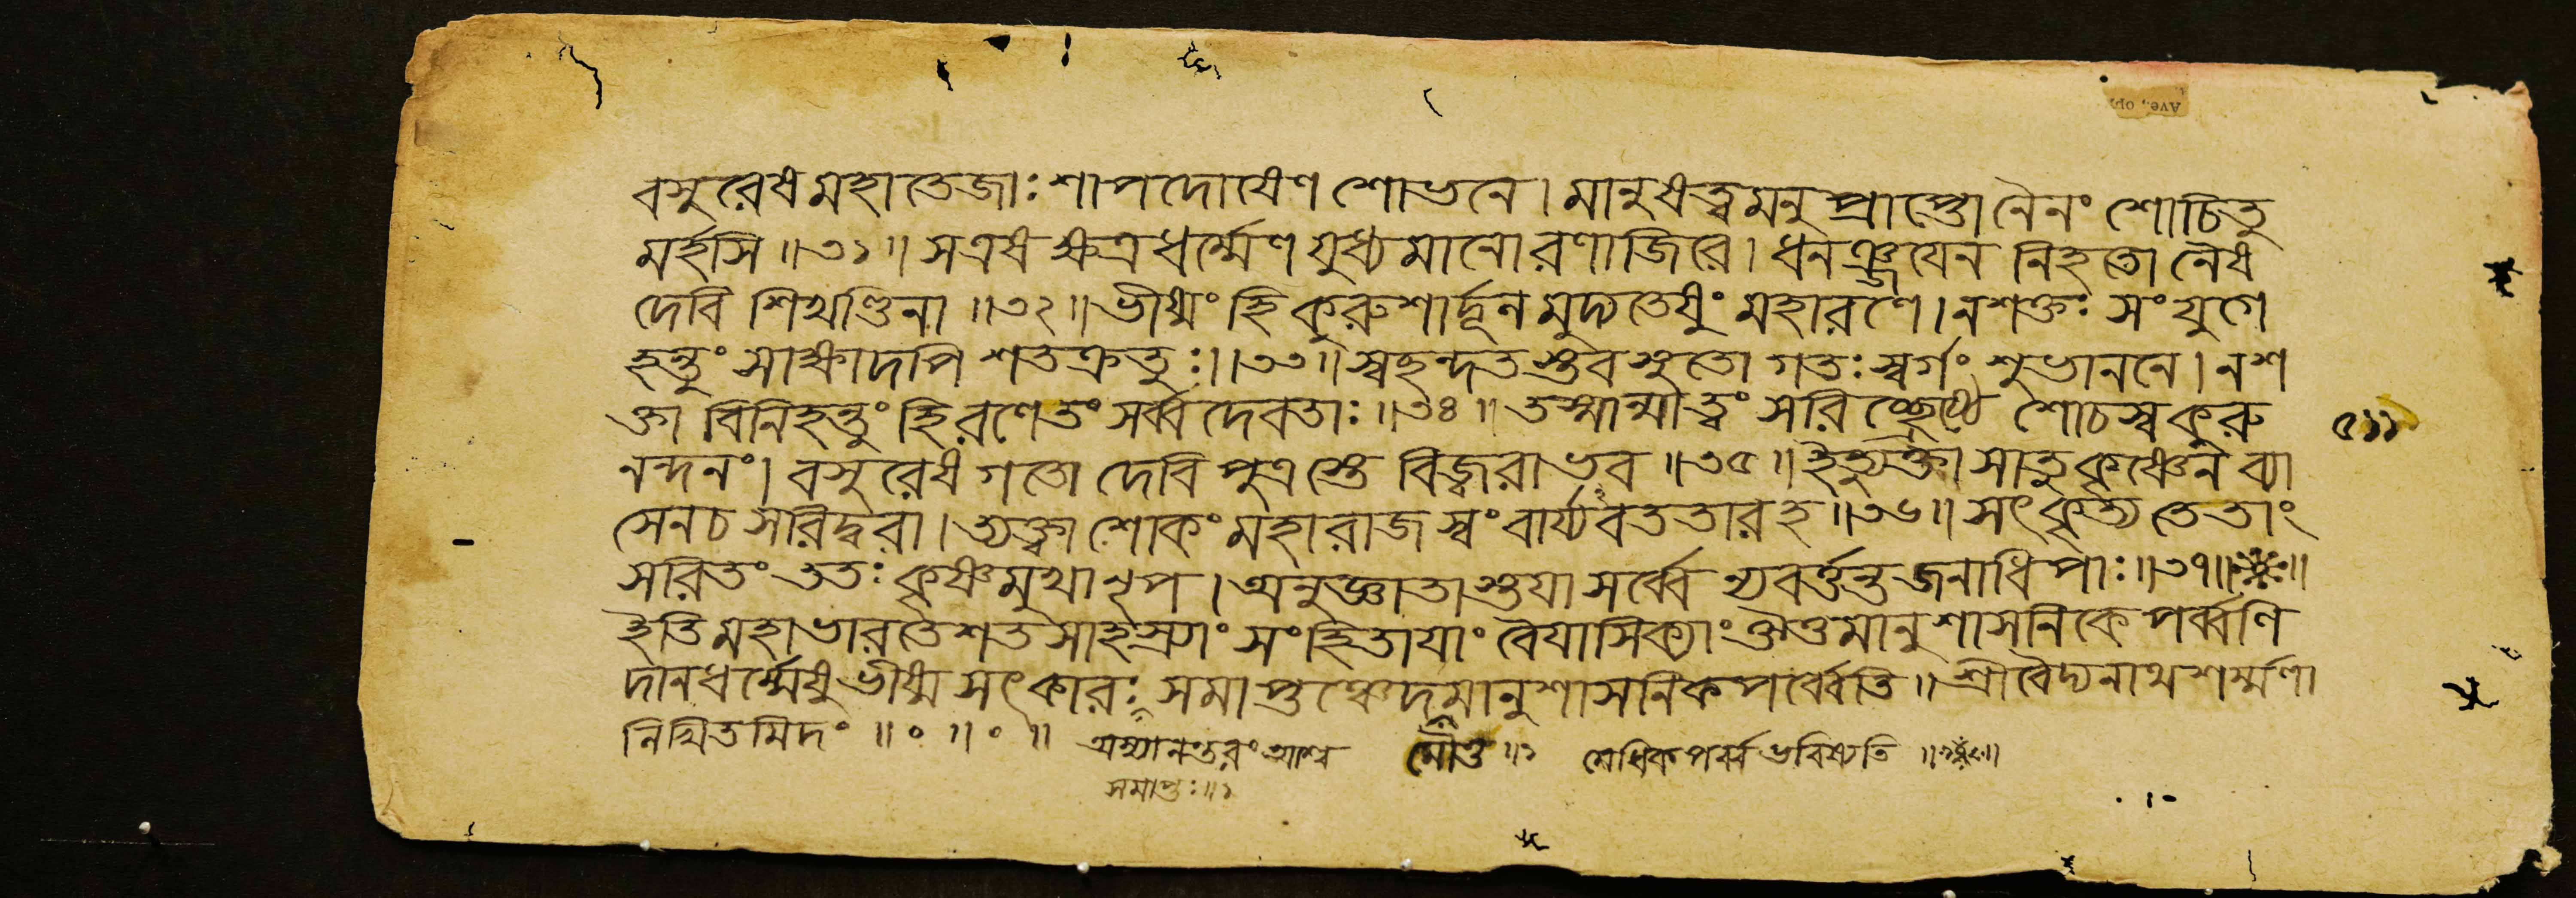 বসুরেষ মহাতেজাঃ শাপদোষেণ শোভনে । মানুষত্বমনুপ্রাপ্তো নৈনং শোচিতু
মর্হসি ॥৩১॥ স এষ ক্ষত্রধর্ম্মেণ যুধ্যমানো রণাজিরে । ধনঞ্জয়েন নিহতো নৈষ
দেবি শিখণ্ডিনা ॥৩২॥ ভীষ্মং হি কুরুশার্দ্দূলমুদ্যতেষুং মহারণে । ন শক্তঃ সংযুগে
হন্তুং সাক্ষাদপি শতক্রতুঃ ॥৩৩॥ স্বছন্দতস্তব সুতো গতঃ স্বর্গং শুভাননে । ন শ
ক্তা বিনিহন্তুং হি রণে তং সর্ব্বদেবতাঃ ॥৩৪॥ তস্মান্মা ত্বং সরিচ্ছ্রেষ্ঠে শোচস্ব কুরু
নন্দনং । বসুরেষ গতো দেবি পুত্রস্তে বিজ্বরা ভব ॥৩৫॥ ইত্যুক্তা সা তু কৃষ্ণেন ব্যা
সেন চ সরিদ্বরা । ত্যক্ত্বা শোকং মহারাজ স্বং বার্য্যবততার হ ॥৩৬॥ সৎকৃত্য তে তাং
সরিতং ততঃ কৃষ্ণমুখা নৃপ । অনুজ্ঞাতাস্তয়া সর্ব্বে ন্যবর্ত্তন্ত জনাধিপাঃ ॥৩৭॥
ইতি মহাভারতে শতসাহস্র্যাং সংহিতায়াং বৈয়াসিক্যাং ঔত্তমানুশাসনিকে পর্ব্বণি
দানধর্ম্মেষু ভীষ্মসৎকারঃ সমাপ্তঞ্চেদমানুশাসনিকপর্ব্বেতি ॥ শ্রীবৈদ্যনাথশর্ম্মণা
লিখিতমিদং ॥०॥०॥ অস্যানন্তরং আশ্ব মেধিকপর্ব্ব ভবিষ্যতি ॥
সমাপ্তঃ ॥১
৫১১
Ave., op